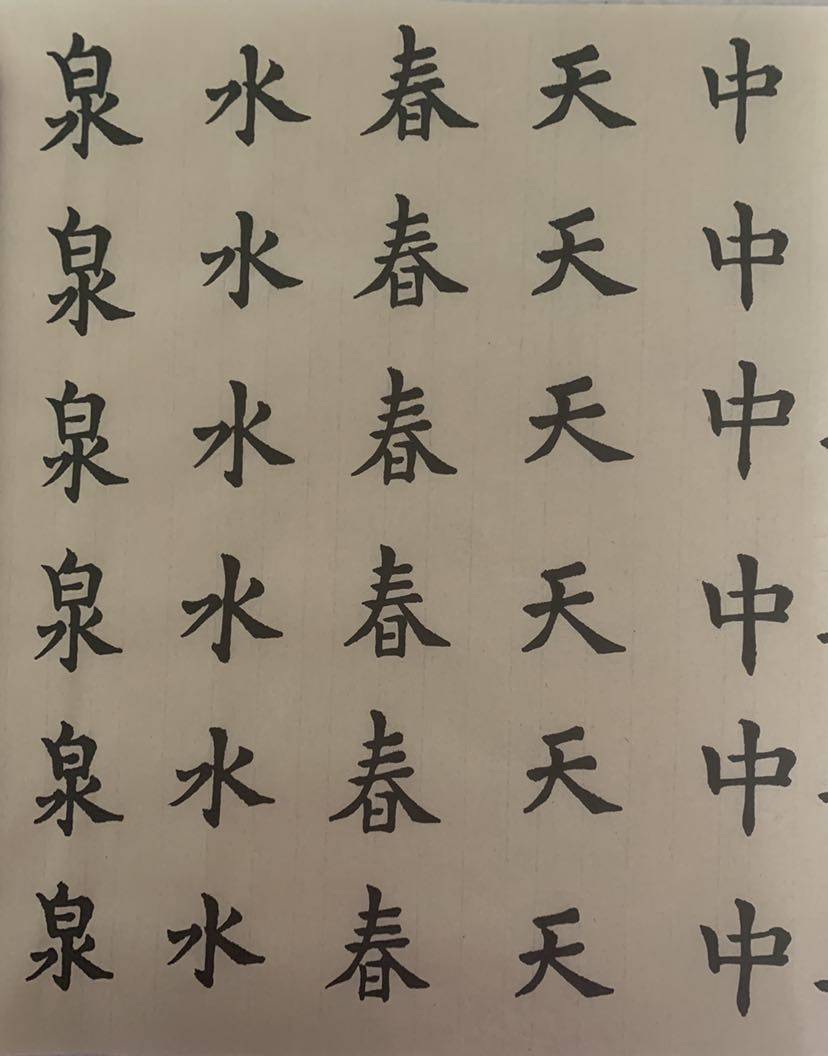 中中中中中中
天天天天天天
春春春春春春
水水水水水水
泉泉泉泉泉泉